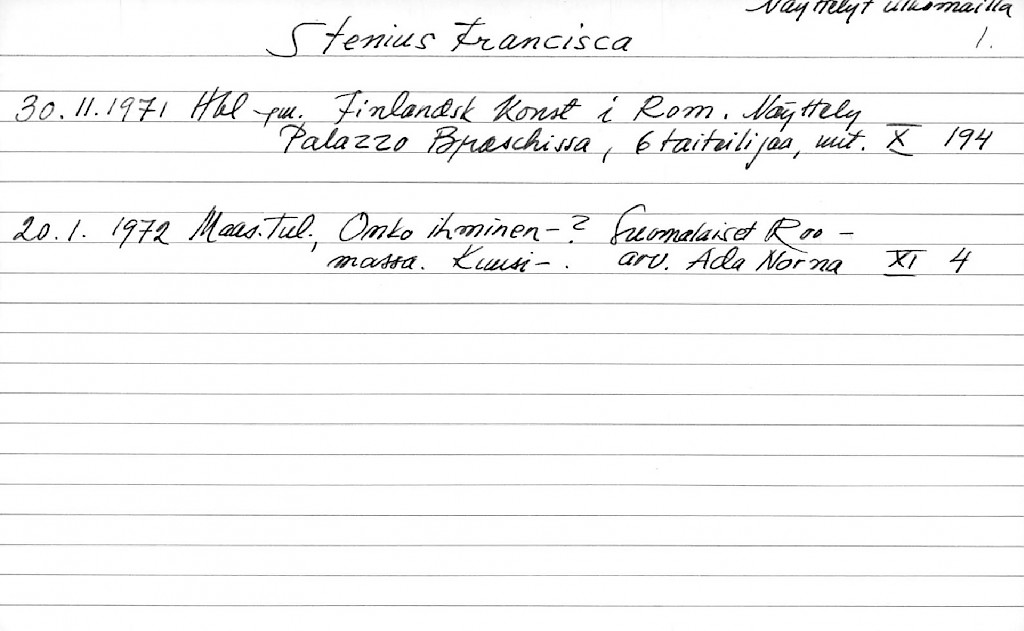 Näyttelyt ulkomailla
Stenius Francisca 1.
30.11.1971 Hbl -pm. Finlandsk Konst i Rom. Näyttely
Palazzo Braschissa, 6 taiteilijaa, mit. X 194
20.1. 1972 Maas.Tul., Onko ihminen-? Suomalaiset Roo-
massa. Kuusi-. arv. Ada Norna XI 4